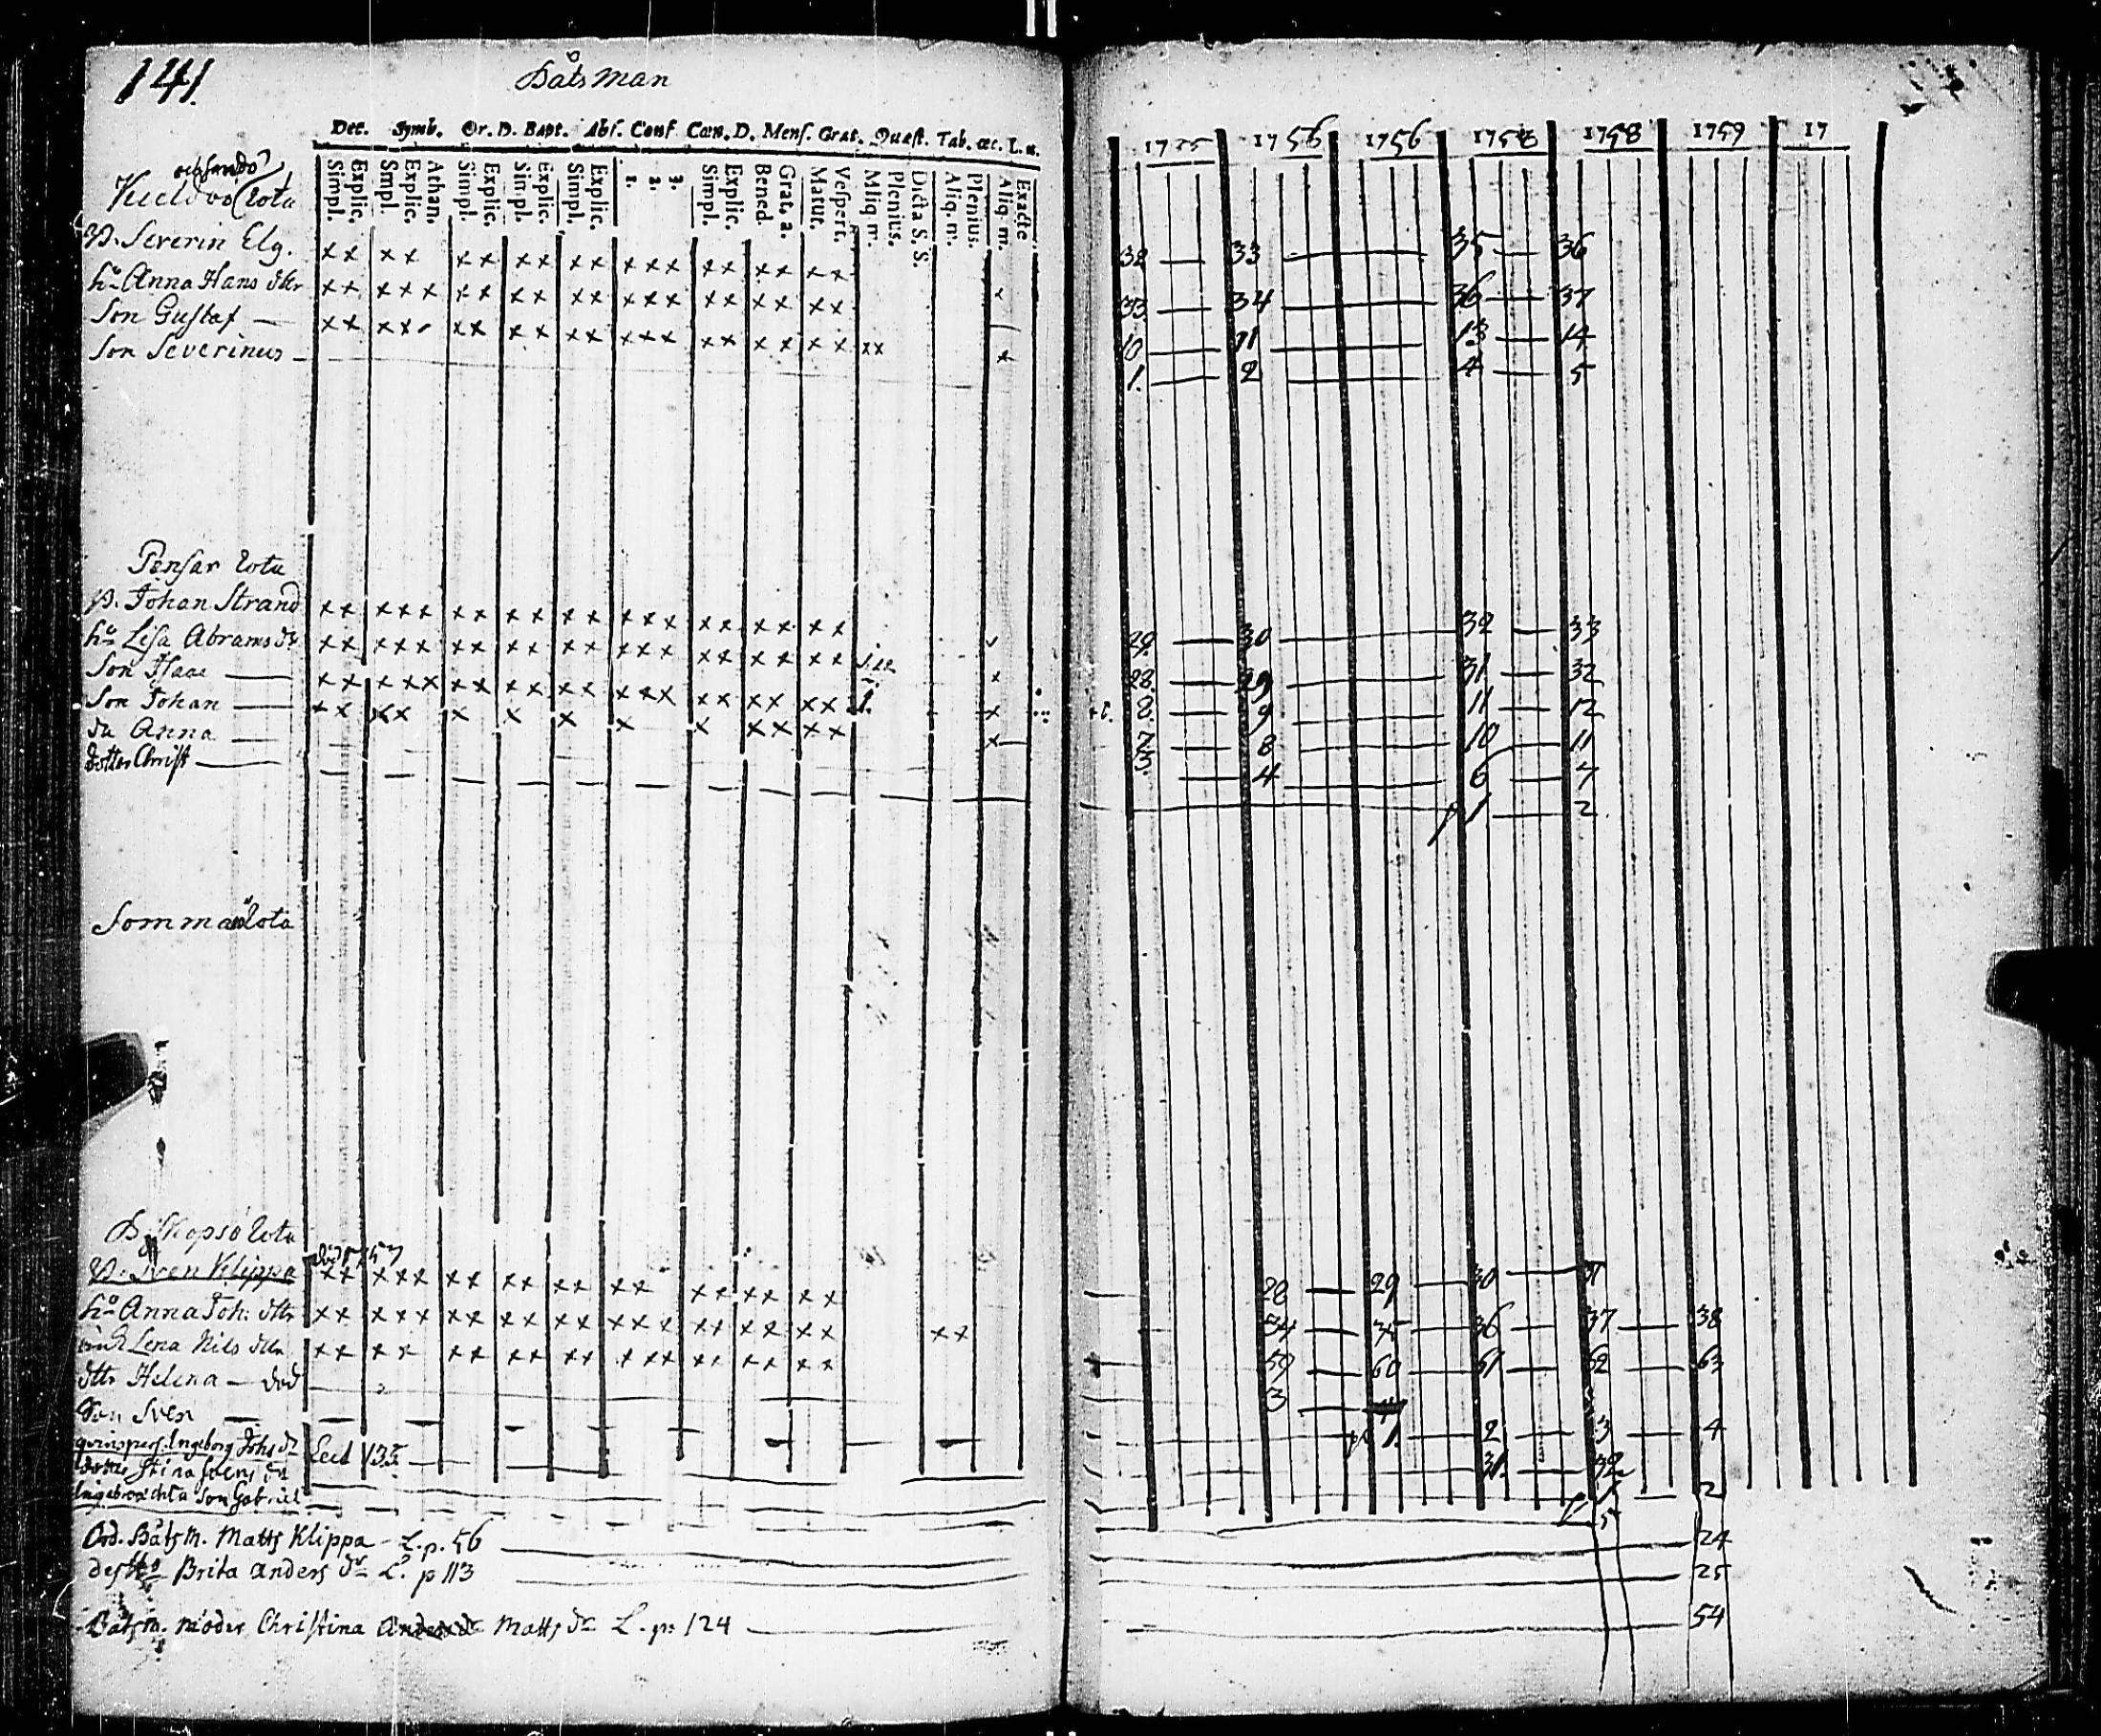 141.
Båtsman
Dec. Symb. Or. D. Bapt. Abs. Conf Cœn. D. Mens. Grat. Quæst. Tab. œc. L. u.
Simpl. Explic. Smpl. Explic. Athan. Simpl. Explic. Simpl. Explic. Simpl. Explic. 1. 2. 3. Simpl. Explic. Bened. Grat. a. Matut. Vespert. Aliq m. Plenius. Dicta S. S. Aliq. m. Plenius. Aliq m. Exacte
1755 1756 1756 1758 1758 1759 17
Rota
B. Severin Elg. 32 — 33 — 35 — 36
ho Anna Hans dtr 33 — 34 — 36 — 37
Son Gustaf — 10 — 11 — 13 — 14
Son Severinus — 1. — 2 — 4 — 5
Pensar Rota
B. Johan Strand 29. — 30 — 32 — 33
ho Lisa Abrams dr 28. — 29 — 31 — 32
Son Isaac — 8. — 9 — 11 — 12
Son Johan — 7. — 8 — 10 — 11
da Anna — 3. — 4 — 6 — 7
dotter Christ — 1 — 2
Sommarö Rota
Biskopsö Rota
död 1757
B. Sven Klippa 28 — 29 — 30 — 31
ho Anna Joh. dttr 34 — 35 — 36 — 37 — 38
Lena Nils dttr 59 — 60 — 61 — 62 — 63
dttr Helena — död 3 — 4
Son Sven — 1. — 2 — 3 — 4
qvinspers. Ingeborg Johs dr Lect 135 — 31. — 32
dotter Stina Svens dr 1 — 2
Son Gabriel 5
Ord. Båtsm. Matts Klippa — L. p. 56 — 24
dess ho Brita Anders dr L. p 113 — 25
Båtsm. moder Christina Matts dr L. p. 124 — 54